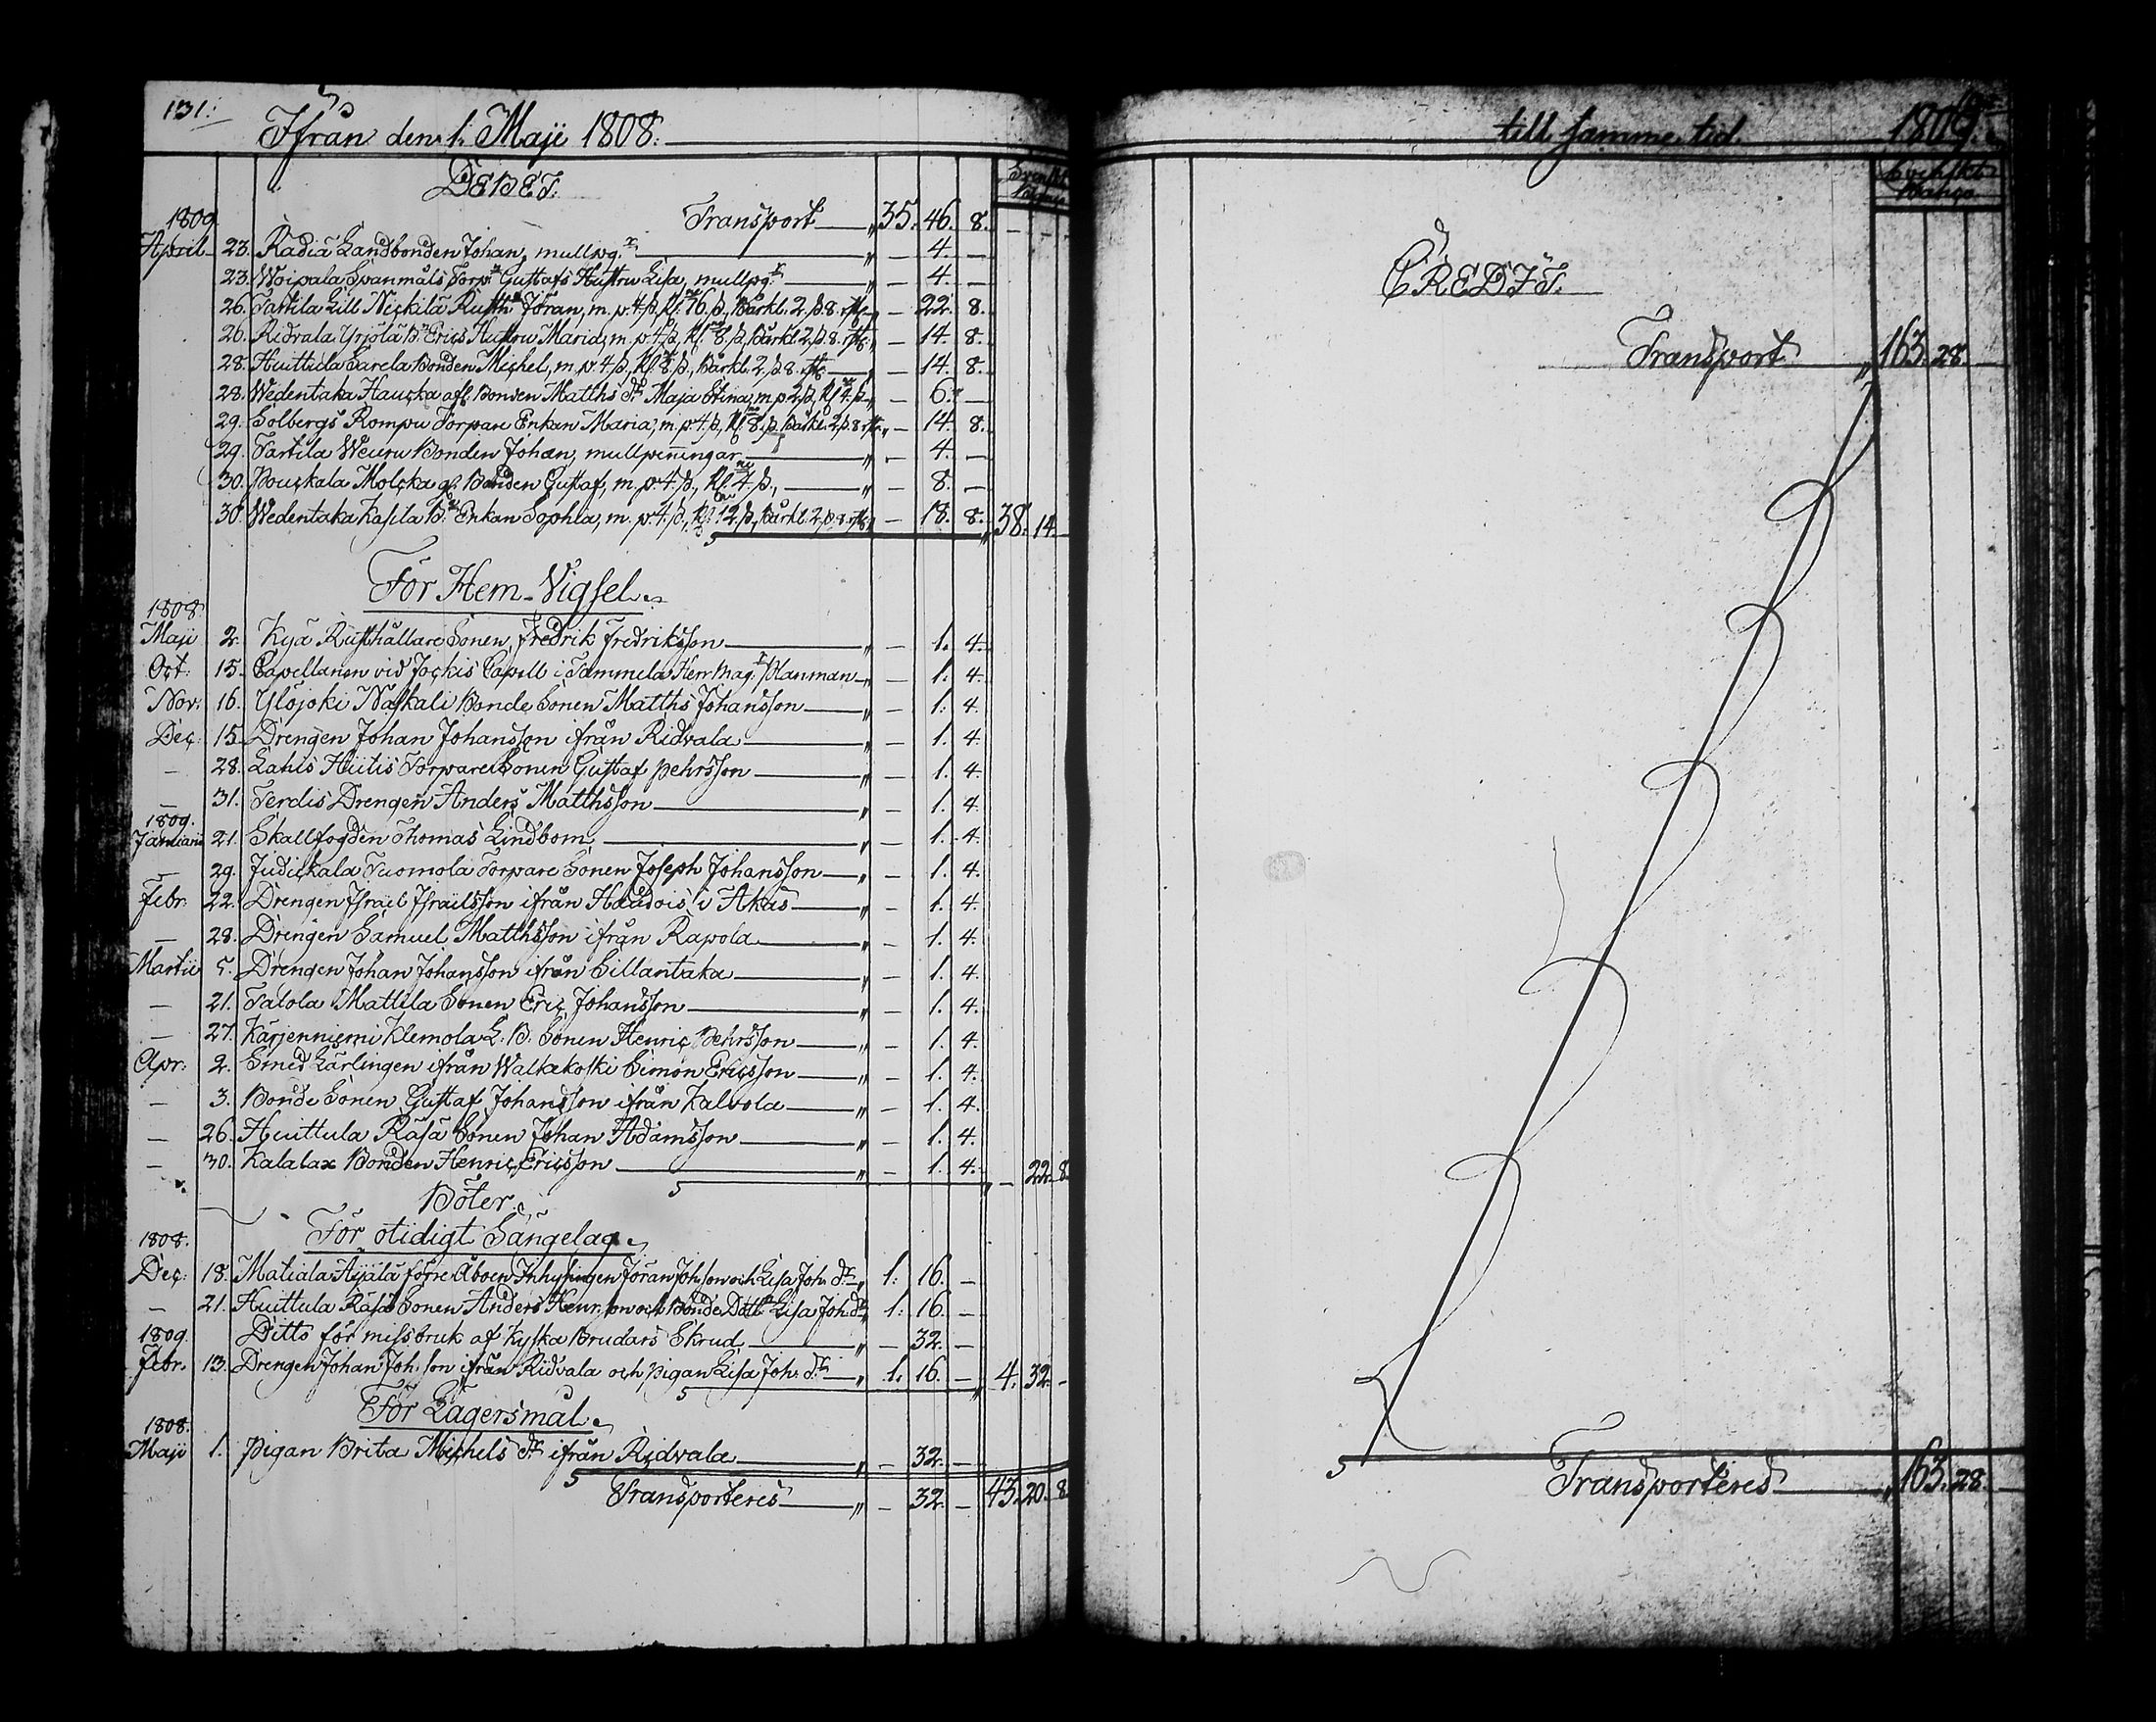 131.
Ifrån den 1. Maji 1808.
DEBET.
Svenskt Banco
1809. Transport " 35. 46. 8. — — —
April 23. Radia Landbonden Johan, mullpg:r " — 4. —
23. Woipala Svanmäls Torp:n Gustafs Hustru Lisa, mullpg:r " — 4. —
26. Tartila Lill Nickilä Rusth: Jöran, m. p. 4 ß, Kl: 16. ß, Bårkl. 2. ß. 8. rst. " — 22. 8.
26. Ridvala Yrjölä B:n Erics Hustru Maria, m. p. 4 ß, Kl: 8. ß, Bårkl 2. ß. 8. rst. " — 14. 8.
28. Huittula Sarela Bonden Michel, m. p. 4. ß., Kl: 8. ß., Bårkl. 2. ß 8. rst. " — 14. 8.
28. Wedentaka Haucka afl. Bonden Matths d:r Maja Stina, m p 2 ß, Kl 4. ß. " — 6. —
29. Solbergs Rompu Torpare Enkan Maria, m. p. 4. ß, Kl: 8. ß. Bårkl. 2. ß. 8. rst. " — 14. 8.
29. Tartila Weuru Bonden Johan, mullpenningar " — 4. —
30. Pouckala Molcka gl. Bonden Gustaf, m. p. 4. ß., Kl: 4. ß., " — 8. —
30. Wedentaka Kasila B:n Enkan Sophia, m. p. 4. ß., Kl: 12. ß, Bårkl. 2. ß 8. rst. " — 18. 8. " 38. 14. —
För Hem-Vigsel.
1808.
Maji 2. Kyä Rusthållare Sonen, Fredrik Fredriksson " — 1. 4.
Oct: 15. Capellanen vid Jockis Capell i Tammela Herr Mag:r Planman " — 1. 4.
Nov: 16. Ylöjoki Naskali Bonde Sonen Matths Johansson " — 1. 4.
Dec: 15. Drengen Johan Johansson ifrån Ridvala " — 1. 4.
— 28. Lahis Hiitis Torpare Sonen Gustaf Pehrsson " — 1. 4.
— 31. Terdis Drengen Anders Matthsson " — 1. 4.
1809.
Januarii 21. Skallfogden Thomas Lindbom " — 1. 4.
— 29. Judickala Tuomola Torpare Sonen Joseph Johansson " — 1. 4.
Febr. 22. Drengen Israel Israelsson ifrån Haudois i Akas " — 1. 4.
— 28. Drengen Samuel Matthsson ifrån Rapola " — 1. 4.
Martii 5. Drengen Johan Johansson ifrån Sillantaka " — 1. 4.
— 21. Talola Mattila Sonen Eric Johansson " — 1. 4.
— 27. Kärjenniemi Klemola L. B: Sonen Henric Pehrsson " — 1. 4.
Apr: 2. Smed Lärlingen ifrån Walkakoski Simon Ericsson " — 1. 4.
— 3. Bonde Sonen Gustaf Johansson ifrån Kalvola " — 1. 4.
— 26. Huittula Räsä Sonen Johan Adamsson " — 1. 4.
— 30. Kalalax Bonden Henric Ericsson " — 1. 4. " — 22. 8.
Böter.
För otidigt Sängelag.
1808.
Dec: 18. Matiala Äijälä förre Åboen Inhysingen Jöran Joh:son och Lisa Joh: d:r " 1. 16. —
— 21. Huittula Räsä Sonen Anders Henr:son och Bonde Dott:r Lisa Joh: d:r " 1. 16. —
1809. Ditto för missbruk af Kyska Brudars Skrud " — 32. —
Febr. 13. Drengen Johan Joh:son ifrån Ridvala och Pigan Lisa Joh: d:r " 1. 16. — " 4. 32. —
För Lägersmål.
1808.
Maji 1. Pigan Brita Michels d:r ifrån Ridvala " — 32. —
Transporteres " — 32. — 43. 20. 8.
till samme tid. 1809.
Svenskt Banco
CREDIT.
Transport " 163. 28. —
Transporteres " 163. 28. —